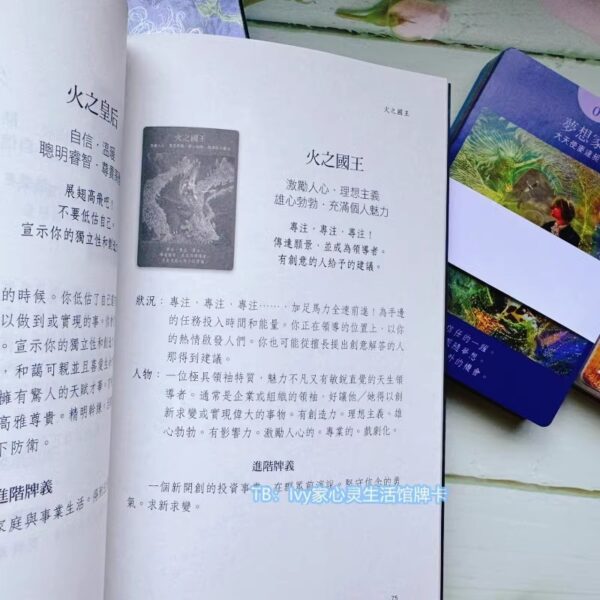 火之皇后
自信·溫暖
聰明睿智·尊貴
展翅高飛吧!
不要低估自己。
宣示你的獨立性和創造
的時候。你低估了自己
以做到或實現的事。你
。宣示你的獨立和創
,和藹可親並且善
擁有驚人的天賦才
高雅尊貴。精明幹練
下防衛。
進階牌義
家庭與事業生活。
火之國王
火之國王
火之國王
激勵人心·理想主義
雄心勃勃·充滿個人魅力
專注,專注,專注!
傳達願景,並成為領導者。
有創意的人給予的建議。
狀況:專注,專注,專注……,加足馬力全速前進!為手邊
的任務投入時間和能量。你正在領導的位置上,以你
的熱情啟發人們。你也可能從擅長提出創意解答的人
那得到建議。
人物:一位極具領袖特質,魅力不凡又有敏銳直覺的天生領
導者。通常是企業或組織的領袖,好讓他/她得以創
新求變或實現偉大的事物。有創造力。理想主義。雄
心勃勃。有影響力。激勵人心的。專業的。戲劇化。
進階牌義
一個新開創的投資事業。在群眾前演說。堅守你全的勇
氣。求新求變。
TB:Ivy家心灵生活馆牌卡
75
0
夢想家
大天使麥達昶
信任的一躍。
外的機會。